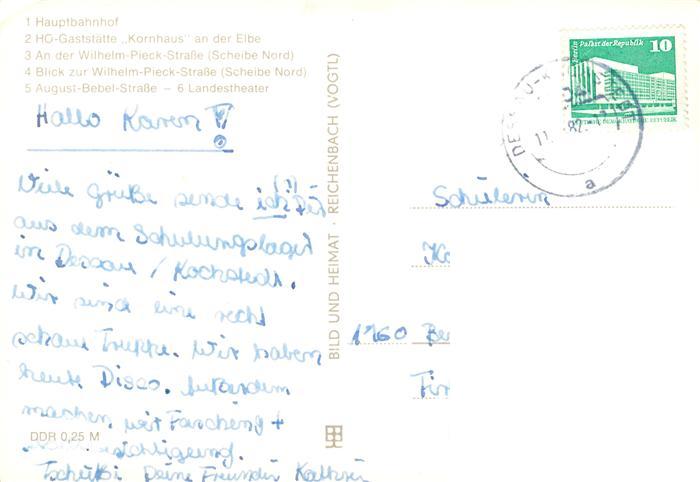 1 Hauptbahnhof
2 HO-Gaststätte „Kornhaus" an der Elbe
3 An der Wilhelm-Pieck-Straße (Scheibe Nord)
4 Blick zur Wilhelm-Pieck-Straße (Scheibe Nord)
5 August-Bebel-Straße – 6 Landestheater
Hallo Karen!!
Viele Grüße sende ich (!!) Dir
aus dem Schulungslager
in Dessau / Kochstedt.
Wir sind eine recht
schaue Truppe. Wir haben
heute Disco. Außerdem
machen wir Fasching +
Tschüßi Deine Freundin Kathrin
DDR 0,25 M
BILD UND HEIMAT · REICHENBACH (VOGTL)
Berlin Palast der Republik 10
DEUTSCHE DEMOKRATISCHE REPUBLIK
82
a
Schülerin
Ka
1160 Ber